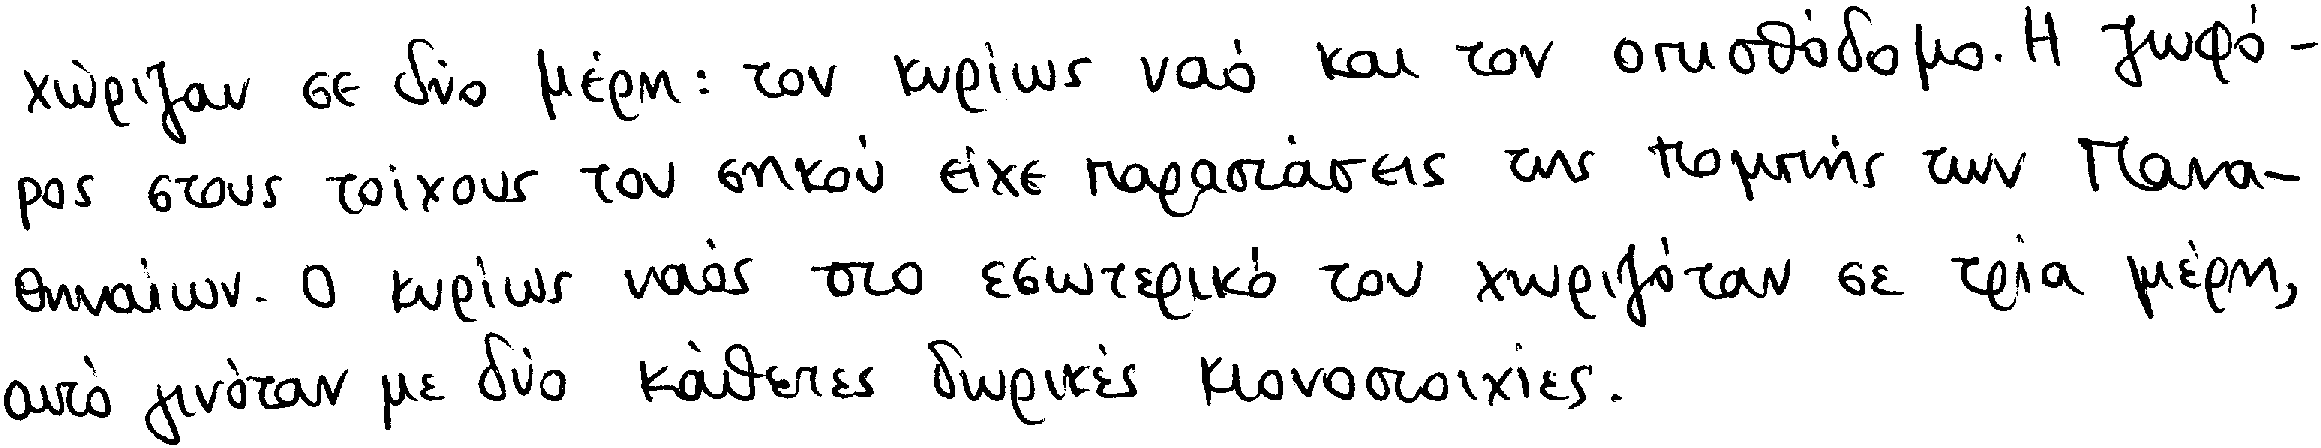 χώριζαν σε δύο μέρη: τον κυρίως ναό και τον οπισθόδομο. Η ζωφό-
ρος στους τοίχους του σηκού είχε παραστάσεις της πομπής των Πανα-
θηναίων. Ο κυρίως ναός στο εσωτερικό του χωριζόταν σε τρία μέρη,
αυτό γινόταν με δύο κάθετες δωρικές κιονοστοιχίες.